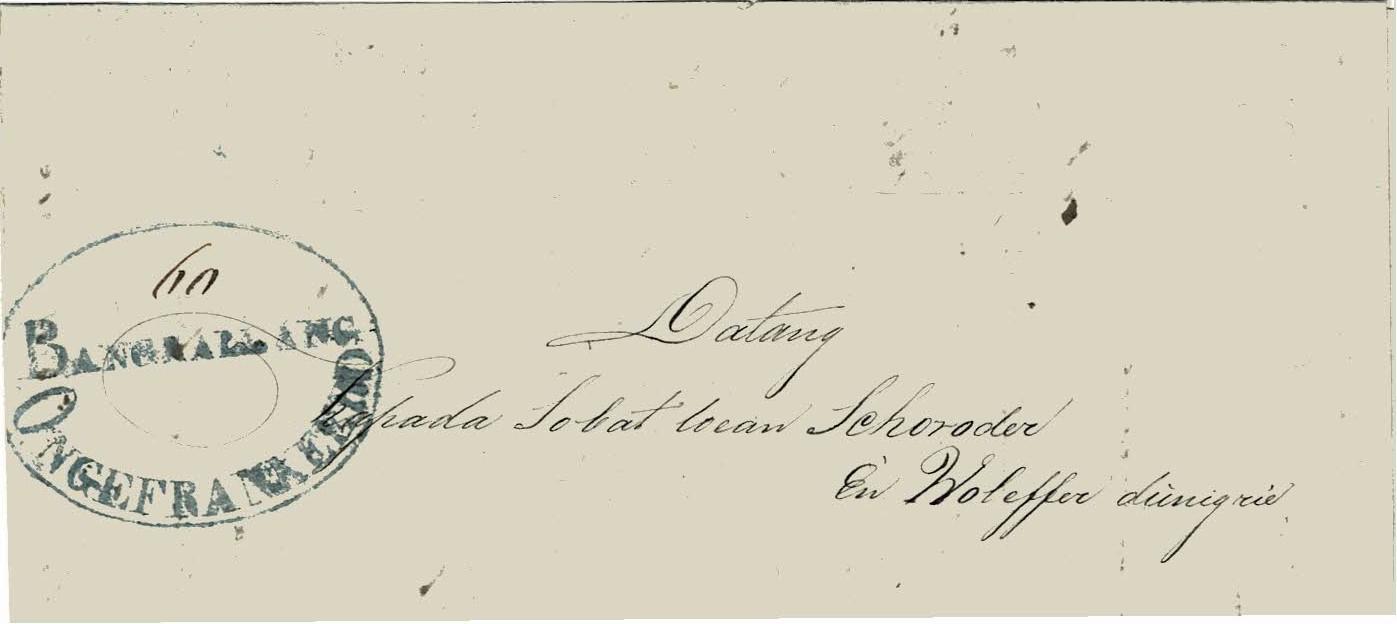 60
BANGKALLANG
ONGEFRANKEERD
Datang
kapada Sobat toean Schoroder
En Woleffer dinigrie